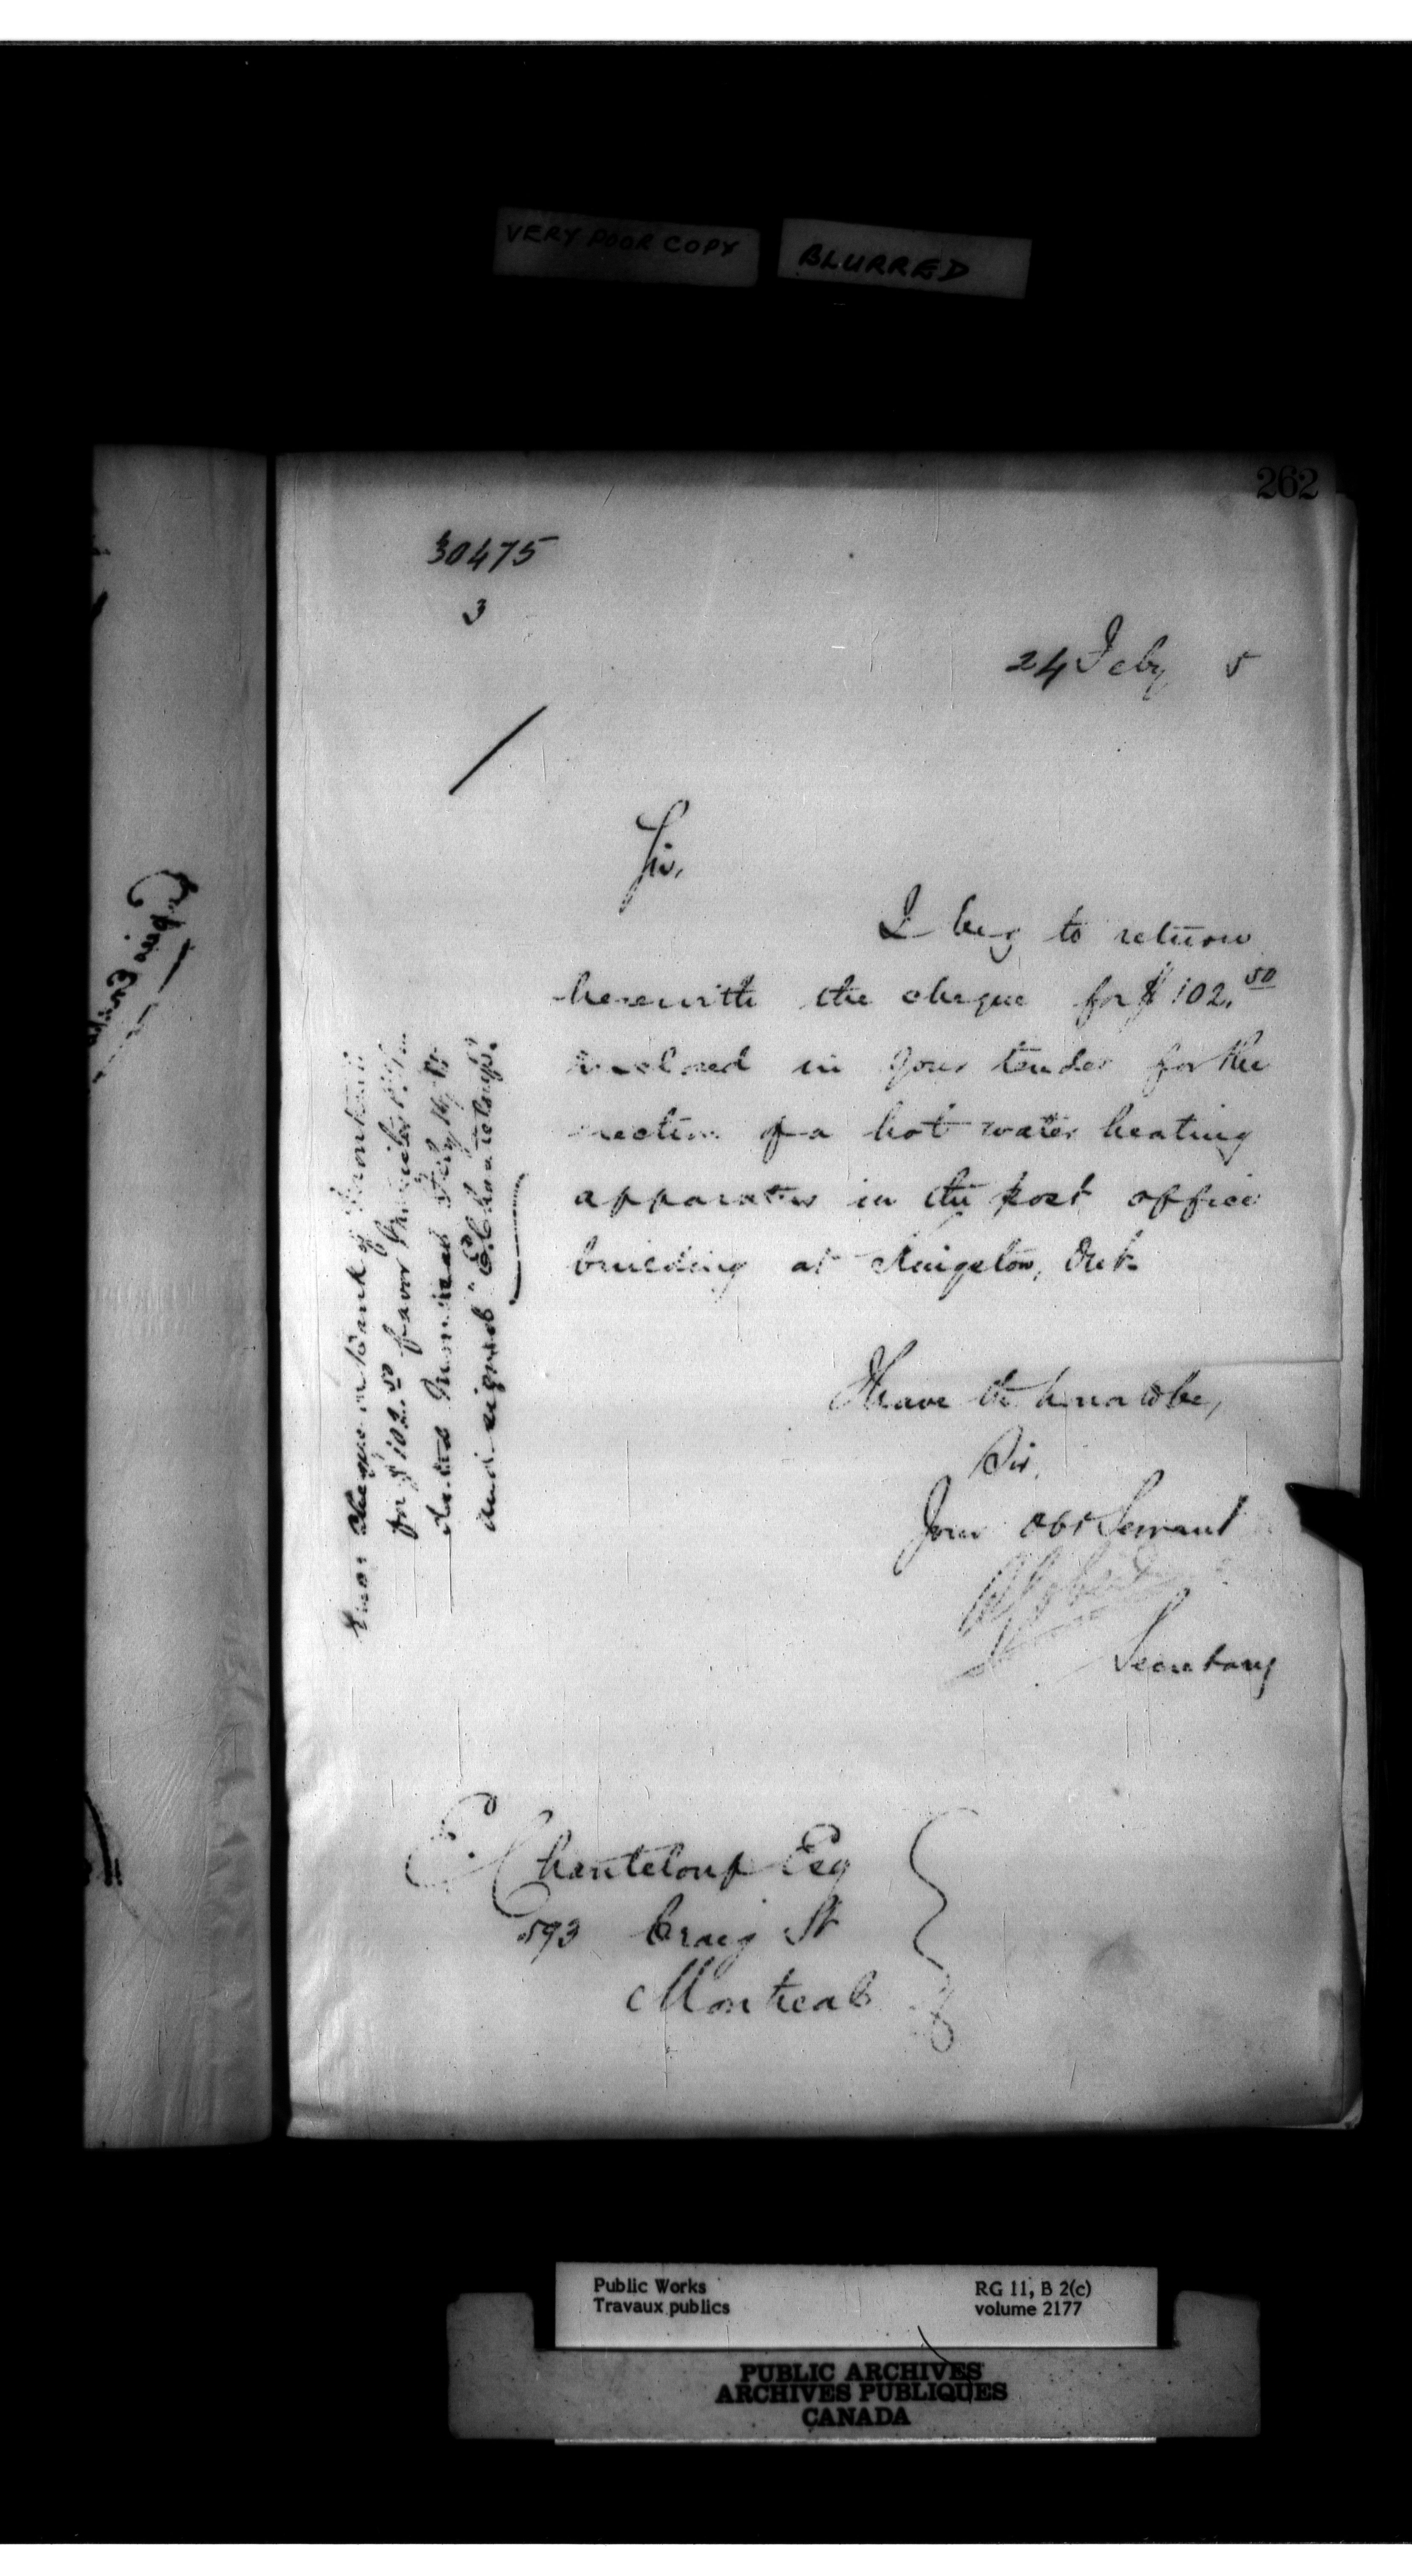 VERY POOR COPY
BLURRED
262
30475
3
24 Feby 5
Sir,
I beg to return
herewith the cheque for $102.50
enclosed in your tender for the
erection of a hot water heating
apparatus in the post office
building at Kingston, Ont.
I have the honor to be,
Sir,
Your Obt Servant
Secretary
cheque on Bank of
for $102.50 favor Minister P.W.
dated Montreal Feby
and signed "E. Chanteloup".
E Chanteloup Esq
593 Craig St
Montreal
Public Works
Travaux publics
RG 11, B 2(c)
volume 2177
PUBLIC ARCHIVES
ARCHIVES PUBLIQUES
CANADA